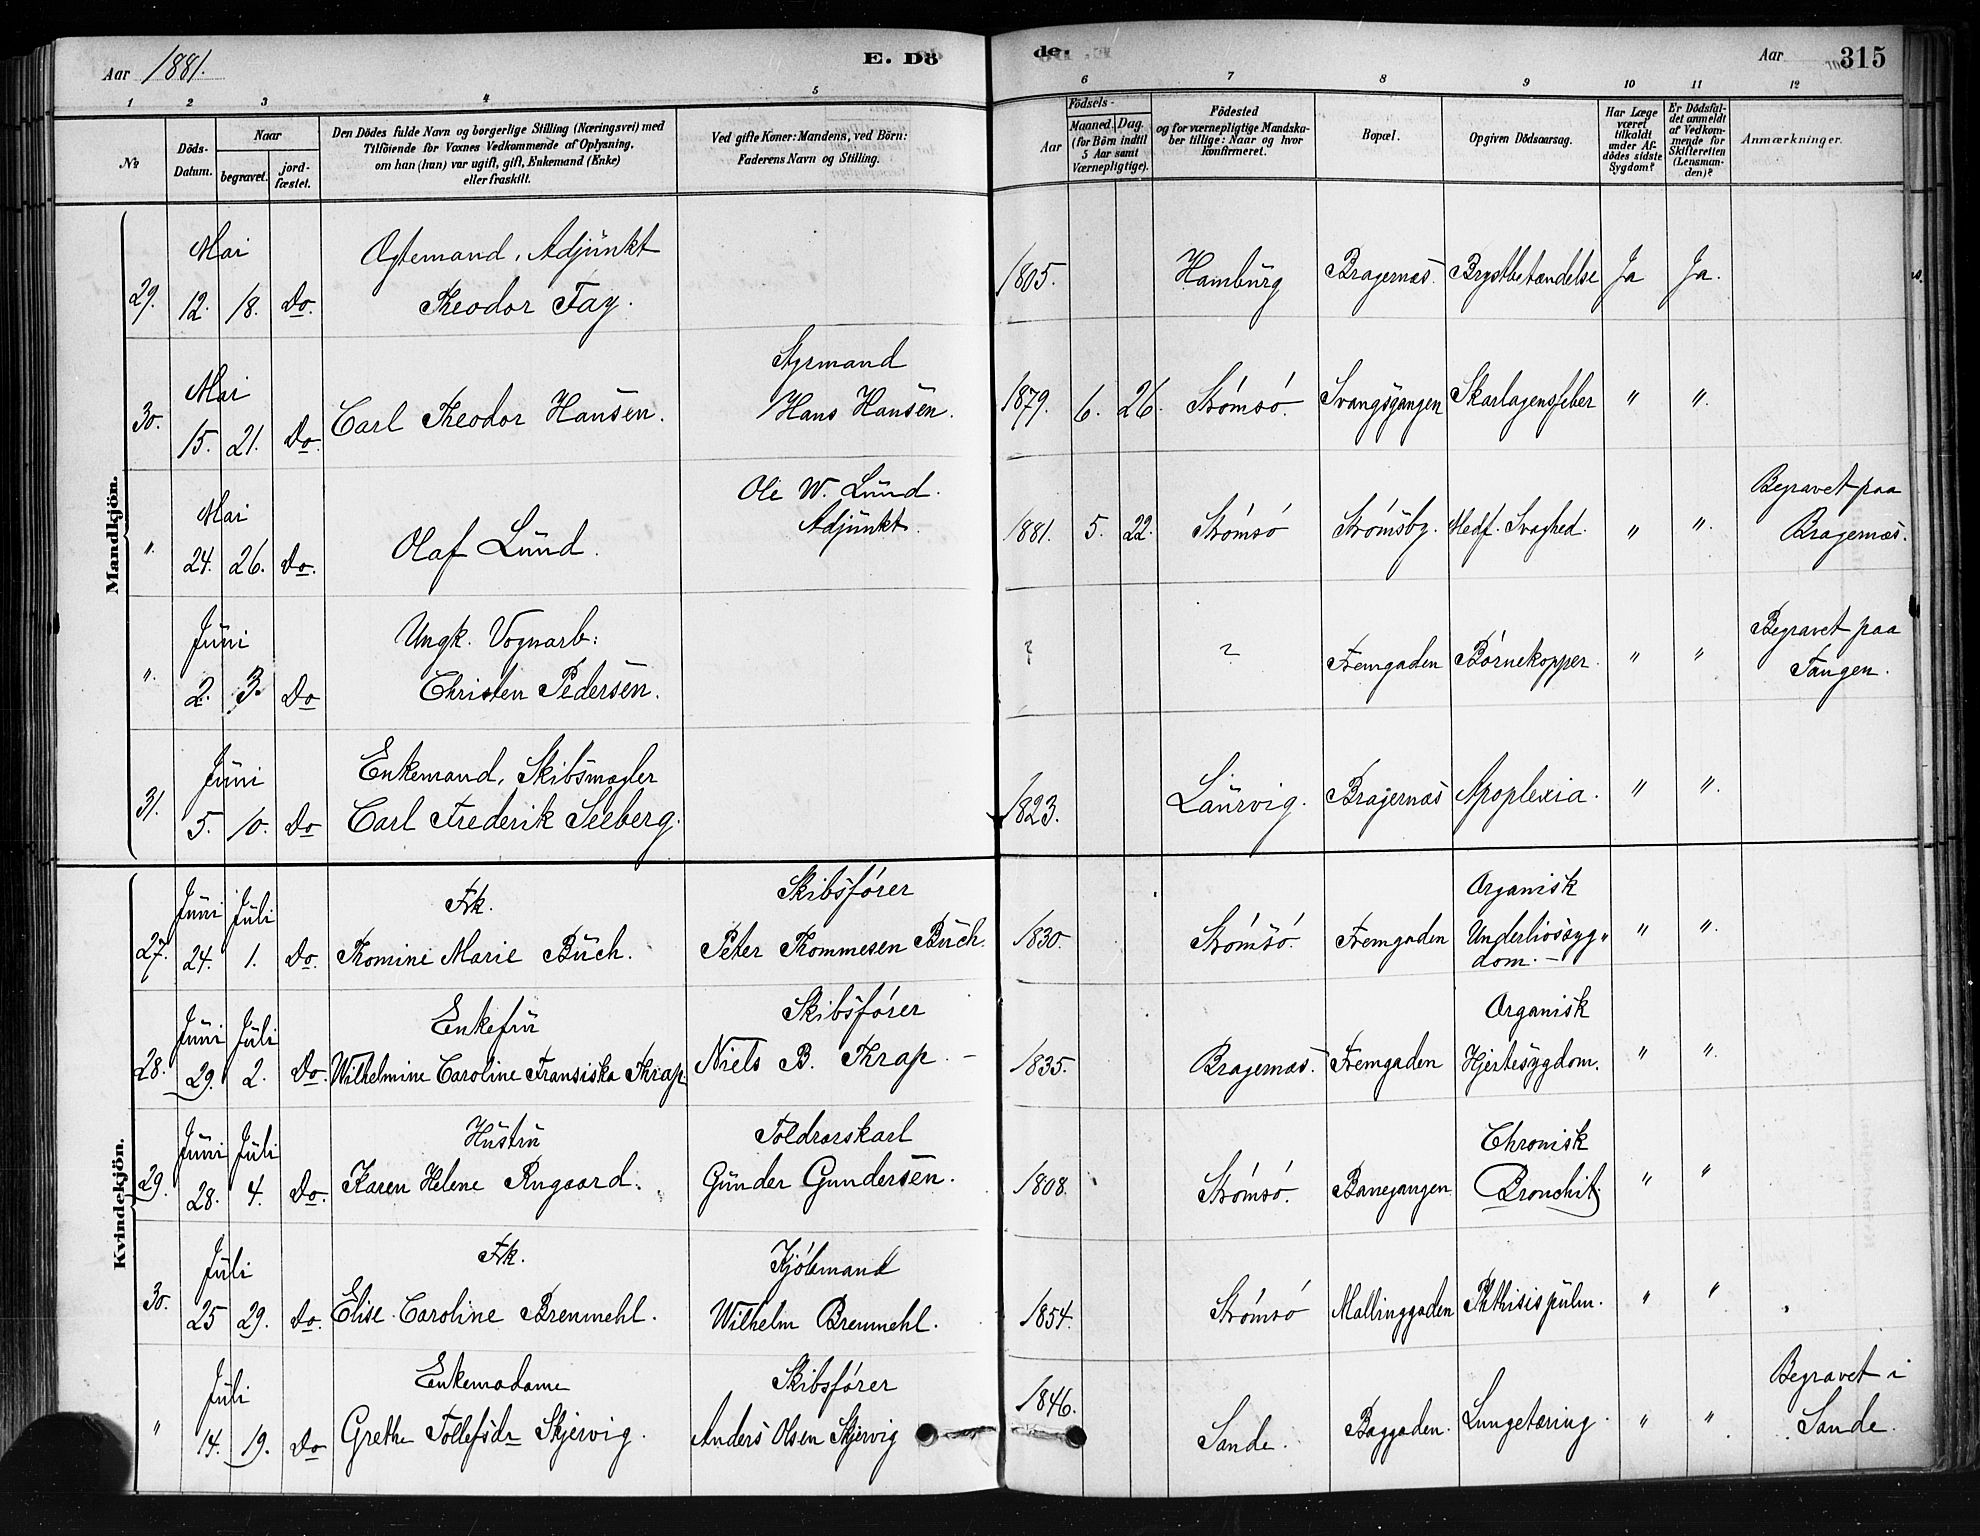 Aar 1881.
E. Dö
de.
Aar
315
1 2 3 4 5 6 7 8 9 10 11 12
No
Döds-Datum.
Naar
begravet.
jord-fæstet.
Den Dödes fulde Navn og borgerlige Stilling (Næringsvei) med
Tilföiende for Voxnes Vedkommende af Oplysning,
om han (hun) var ugift, gift, Enkemand (Enke)
eller fraskilt.
Ved gifte Koner: Mandens, ved Börn:
Faderens Navn og Stilling.
Födsels-
Aar
Maaned. Dag.
(for Börn indtil
5 Aar samt
Værnepligtige).
Födested
og for værnepligtige Mandska-
ber tillige: Naar og hvor
konfirmeret.
Bopæl.
Opgiven Dödsaarsag.
Har Læge
været
tilkaldt
under Af-
dödes sidste
Sygdom?
Er Dödsfal-
det anmeldt
af Vedkom-
mende for
Skifteretten
(Lensman-
den)?
Anmærkninger.
Mandkjön.
Mai
29. 12. 18. Do. Ægtemand, Adjunkt
Theodor Fay.
1805. Hamburg Bragernæs. Brystbetændelse Ja Ja.
Mai
30. 15. 21. Do. Carl Theodor Hansen.
Styrmand
Hans Hansen.
1879. 6. 26. Strömsö. Svangsgangen Skarlagensfeber " ".
Mai
". 24. 26. Do. Olaf Lund.
Ole W. Lund.
Adjunkt.
1881. 5. 22. Strömsö Strömsby. Medf. Svaghed. " ".
Begravet paa
Bragernæs.
Juni
". 2. 3. Do Ungk. Vognarb:
Christen Pedersen.
? ? Fremgaden Börnekopper. " "
Begravet paa
Tangen.
Juni
31. 5. 10. Do Enkemand, Skibsmægler
Carl Frederik Seeberg.
1823. Laurvig. Bragernæs Apoplexia. " ".
Kvindekjön.
Juni Juli
27. 24. 1. Do. Frk.
Thomine Marie Buch.
Skibsförer
Peter Thommesen Buch.
1830. Strömsö. Fremgaden
Organisk
Underlivssyg"
dom.
" ".
Juni Juli
28. 29. 2. Do. Enkefru
Wilhelmine Caroline Fransiska Thrap
Skibsförer
Niels B. Thrap. –
1835. Bragernæs. Fremgaden
Organisk
Hjertesygdom.
" ".
Juni Juli
29. 28. 4. Do. Hustru
Karen Helene Rugaard.
Toldrorskarl
Gunder Gundersen.
1808. Strömsö. Banegangen
Chronisk
Bronchit.
" "
Juli
30. 25 29. Do. Frk.
Elise Caroline Bremmehl.
Kjöbmand
Wilhelm Bremmehl.
1854. Strömsö Mallinggaden Phthisis pulm. " "
Juli
" 14. 19. Do Enkemadame
Grethe Tollefsdr Skjervig.
Skibsförer
Anders Olsen Skjervig
1846. Sande. Baggaden. Lungetæring. " "
Begravet i
Sande.